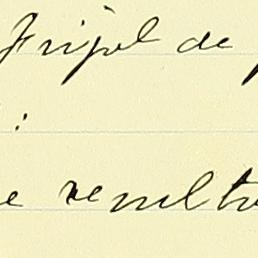 Frijol de
:
e resulta